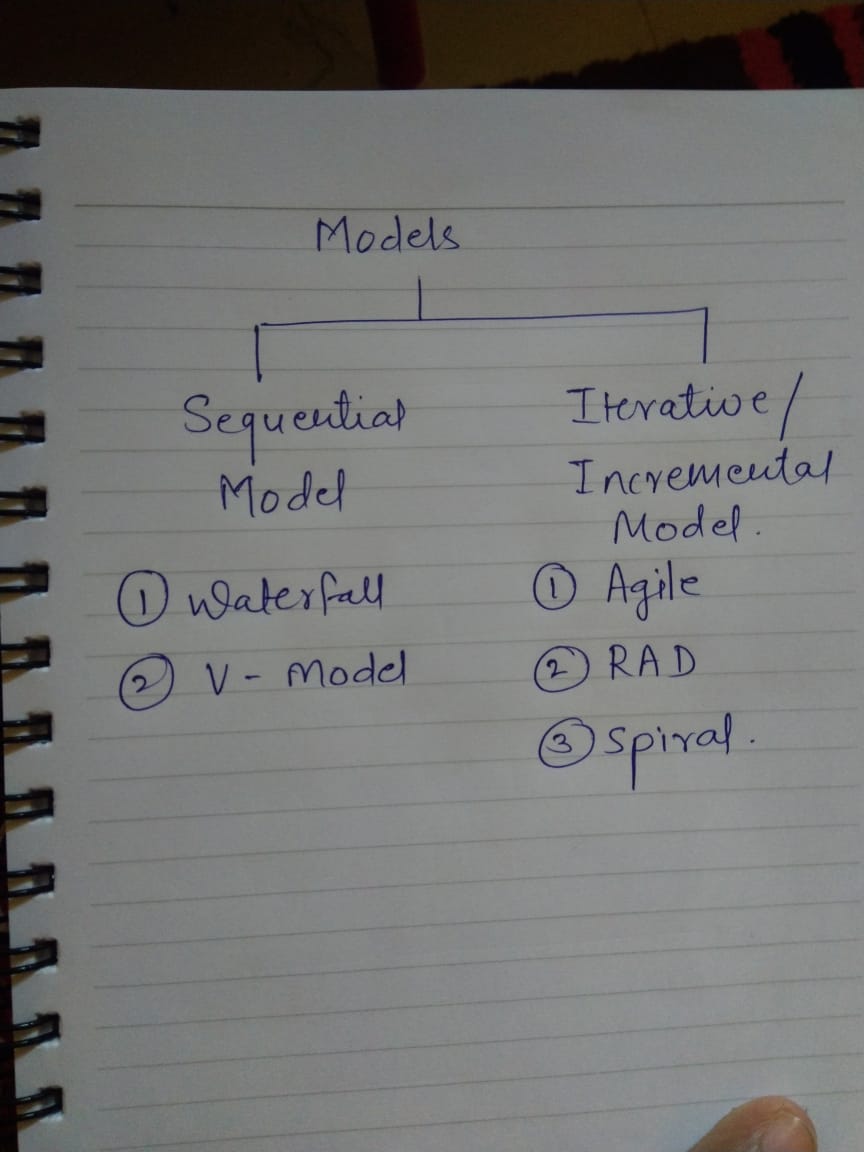 Models
Sequential
Model
① Waterfall
② V - Model
Iterative/
Incremental
Model.
① Agile
② RAD
③ Spiral.